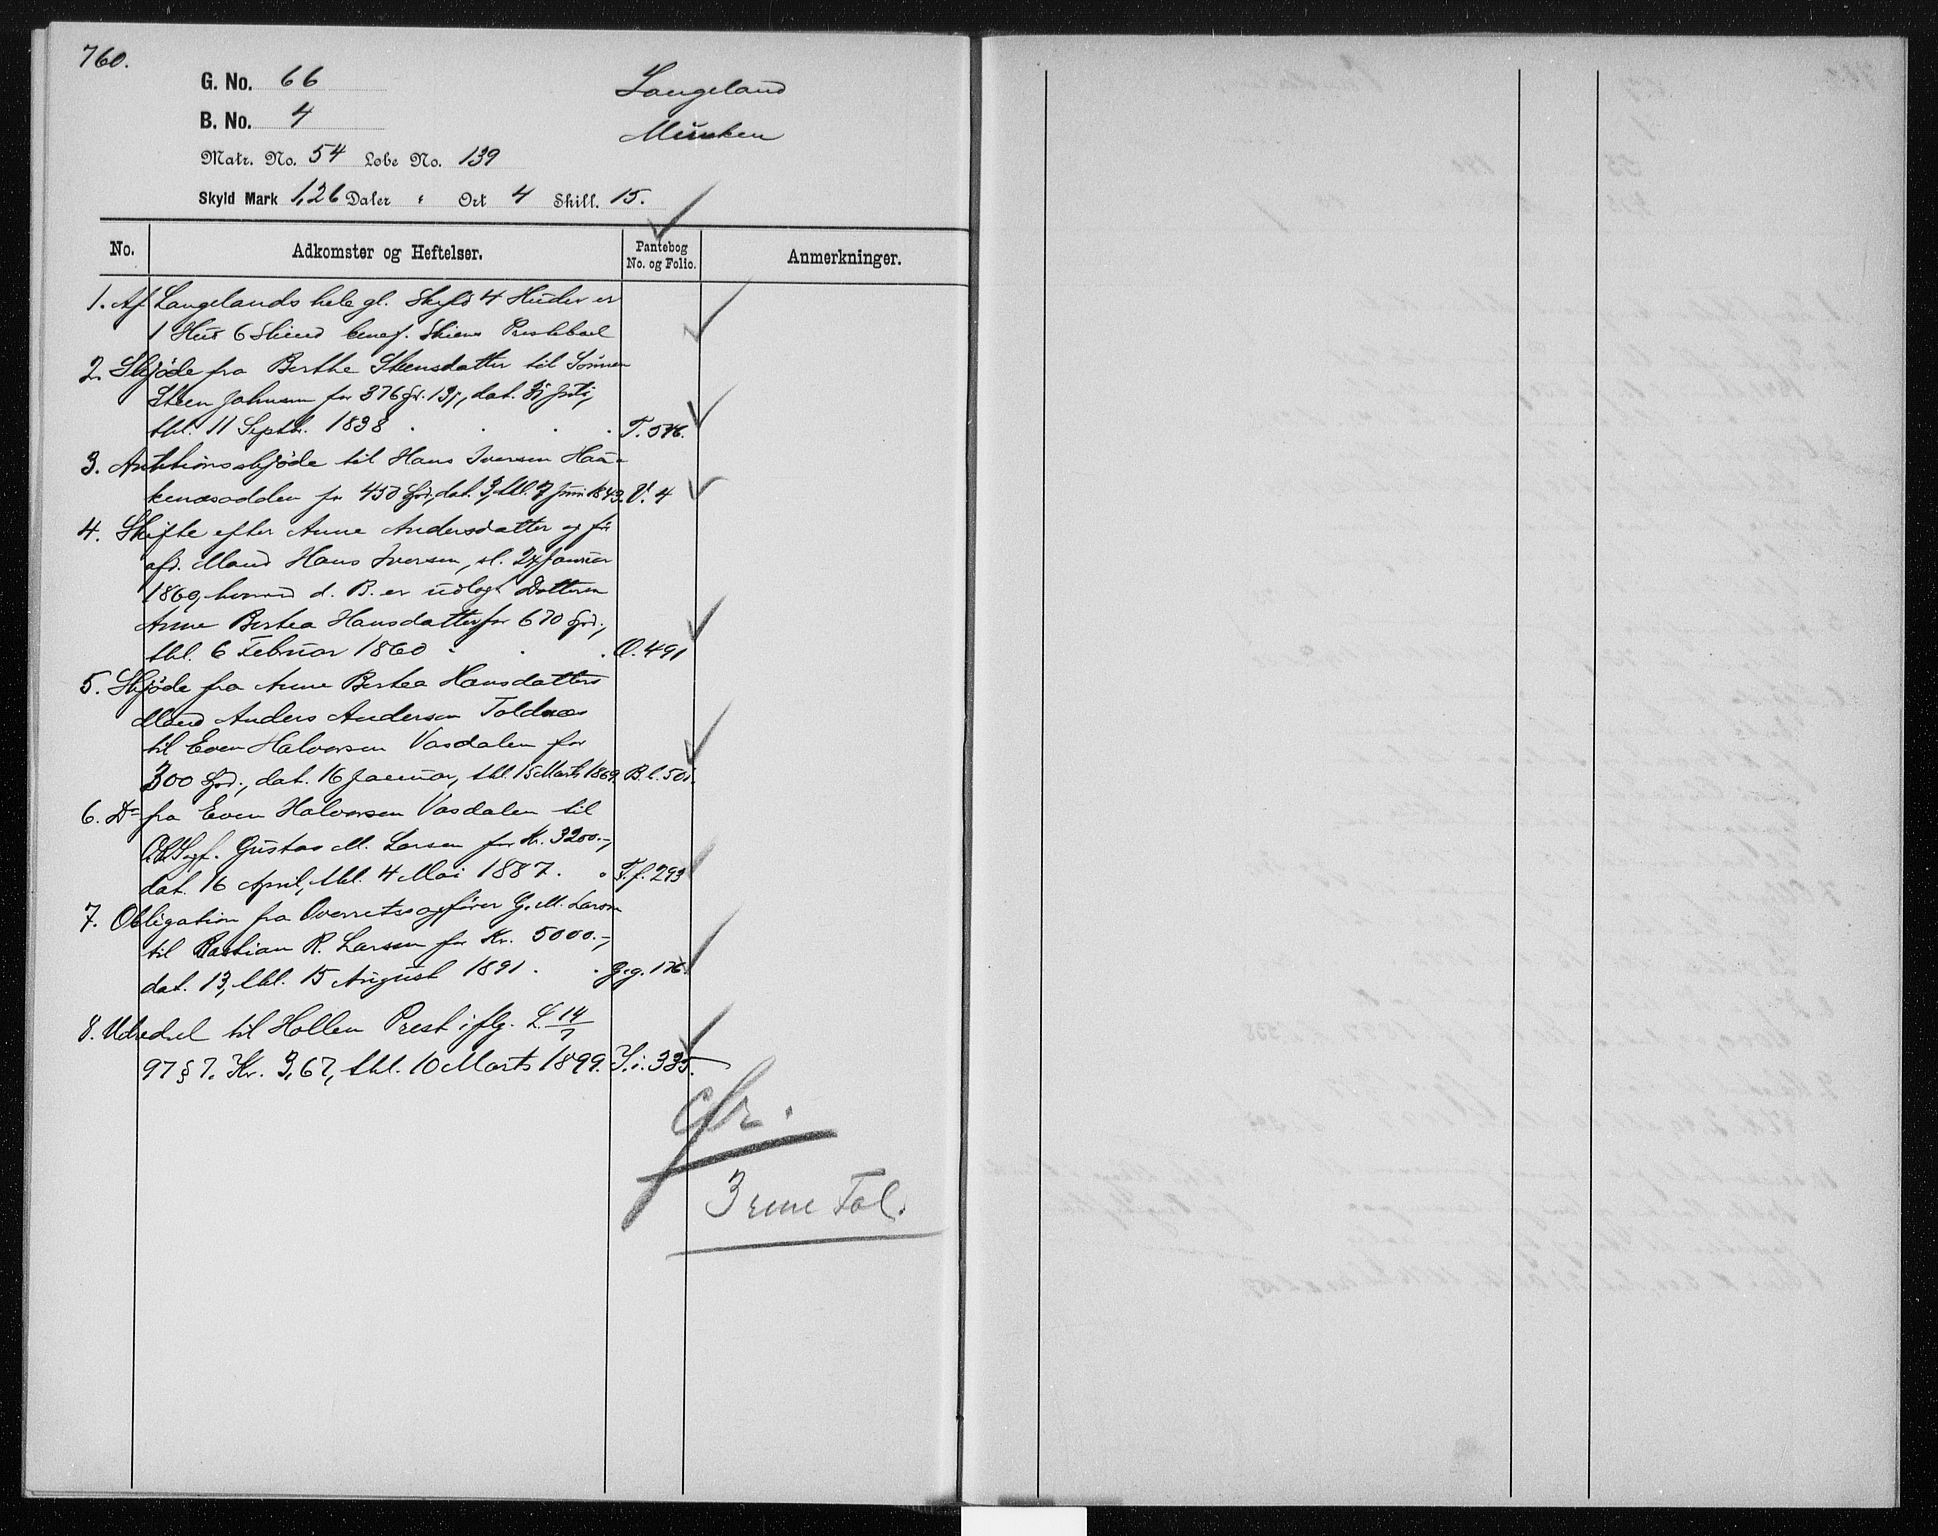 760.
G. No. 66
Langeland
B. No. 4
Munken
Matr. No. 54 Løbe No. 139
Skyld Mark 1,26 Daler " Ort 4 Skill. 15.
No. Adkomster og Heftelser. Pantebog No. og Folio. Anmerkninger.
1. Af Langelands hele gl. Skyld 4 Huder er
1 Hud 6 Skind benef. Skiens Prestebol
2. Skjøde fra Berthe Steensdatter til Sønnen
Steen Johnsen for 376 , dat. Juli,
tbl. 11 Septbr. 1838 . . . . T. 576.
3. Auktionsskjøde til Hans Iversen Haa-
kenæsodden for 450 Spd., dat. 3, tbl. 7 Juni 1843. V. 4
4. Skifte efter Anne Andersdatter og før
afd. Mand Hans Iversen, sl. 24 Januar
1860, hvorved d. B. er udlagt Datteren
Anne Bertea Hansdatter for 670 Spd.,
tbl. 6 Februar 1860 . . . O. 491
5. Skjøde fra Anne Bertea Hansdatters
Mand Anders Andersen Toldnæs
til Even Halvorsen Vasdalen for
300 Spd., dat. 16 Januar, tbl. 15 Marts 1869. B.b. 501.
6. Do fra Even Halvorsen Vasdalen til
O.R.Sagf. Gustav M. Larsen for Kr. 3200.-,
dat. 16 April, tbl. 4 Mai 1887. . F.f. 293
7. Obligation fra Overretssagfører G. M. Larsen
til Bastian R. Larsen for Kr. 5000.-,
dat. 13, tbl. 15 August 1891 . . G.g. 176.
8. Udredsel til Hollen Prest iflg. L. 14/7
97 § 7. Kr. 3,67, tbl. 10 Marts 1899. I.i. 335.
cfr.
3 rene Fol.